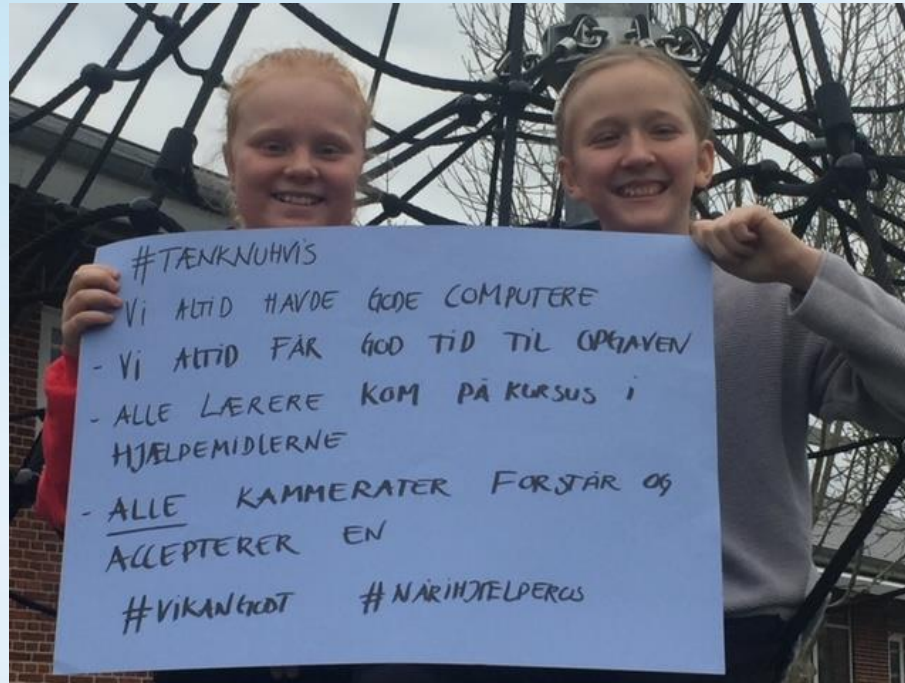 #TÆNKNUHVIS
- Vi ALTID HAVDE GODE COMPUTERE
- Vi ALTID FÅR GOD TID TIL OPGAVEN
- ALLE LÆRERE KOM PÅ KURSUS i
HJÆLPEMIDLERNE
- ALLE KAMMERATER FORSTÅR OG
ACCEPTERER EN
#VIKANGODT #NÅRIHJÆLPEROS